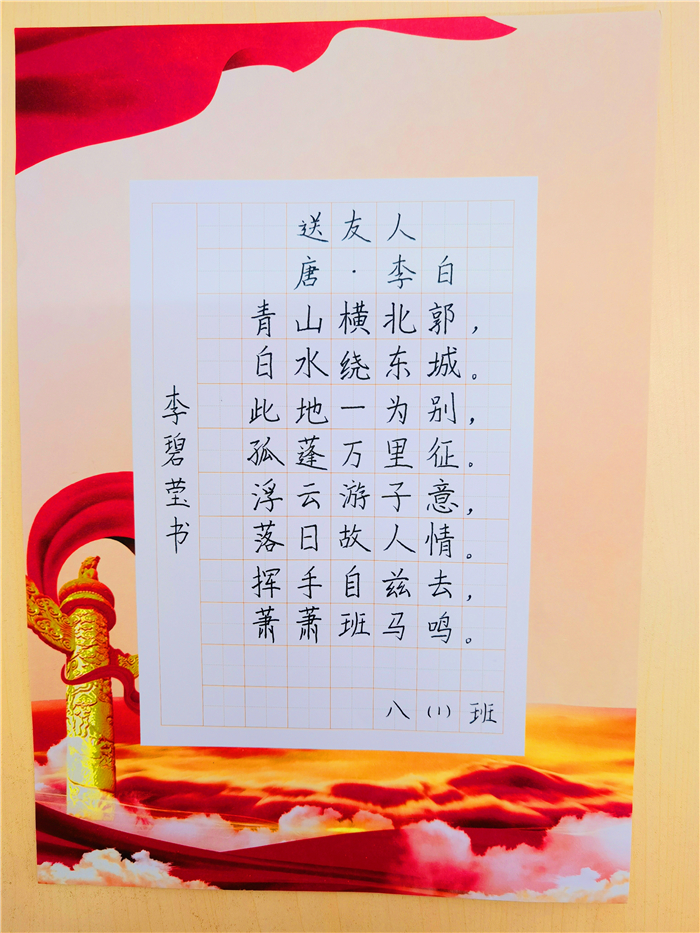 送友人
唐·李白
青山横北郭，
白水绕东城。
此地一为别，
孤蓬万里征。
浮云游子意，
落日故人情。
挥手自兹去，
萧萧班马鸣。
八(1)班
李碧莹书